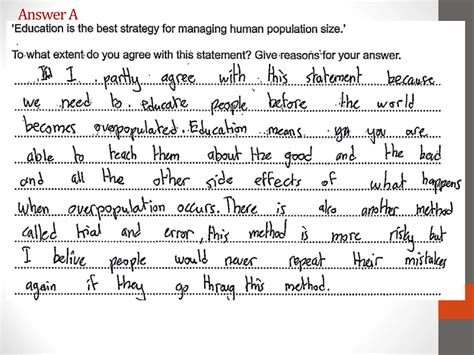 Answer A
'Education is the best strategy for managing human population size.'
To what extent do you agree with this statement? Give reasons for your answer.
I partly agree with this statement because
we need to educate people before the world
becomes overpopulated. Education means you are
able to teach them about the good and the bad
and all the other side effects of what happens
when overpopulation occurs. There is also another method
called trial and error, this method is more risky but
I belive people would never repeat their mistakes
again if they go throug this method.